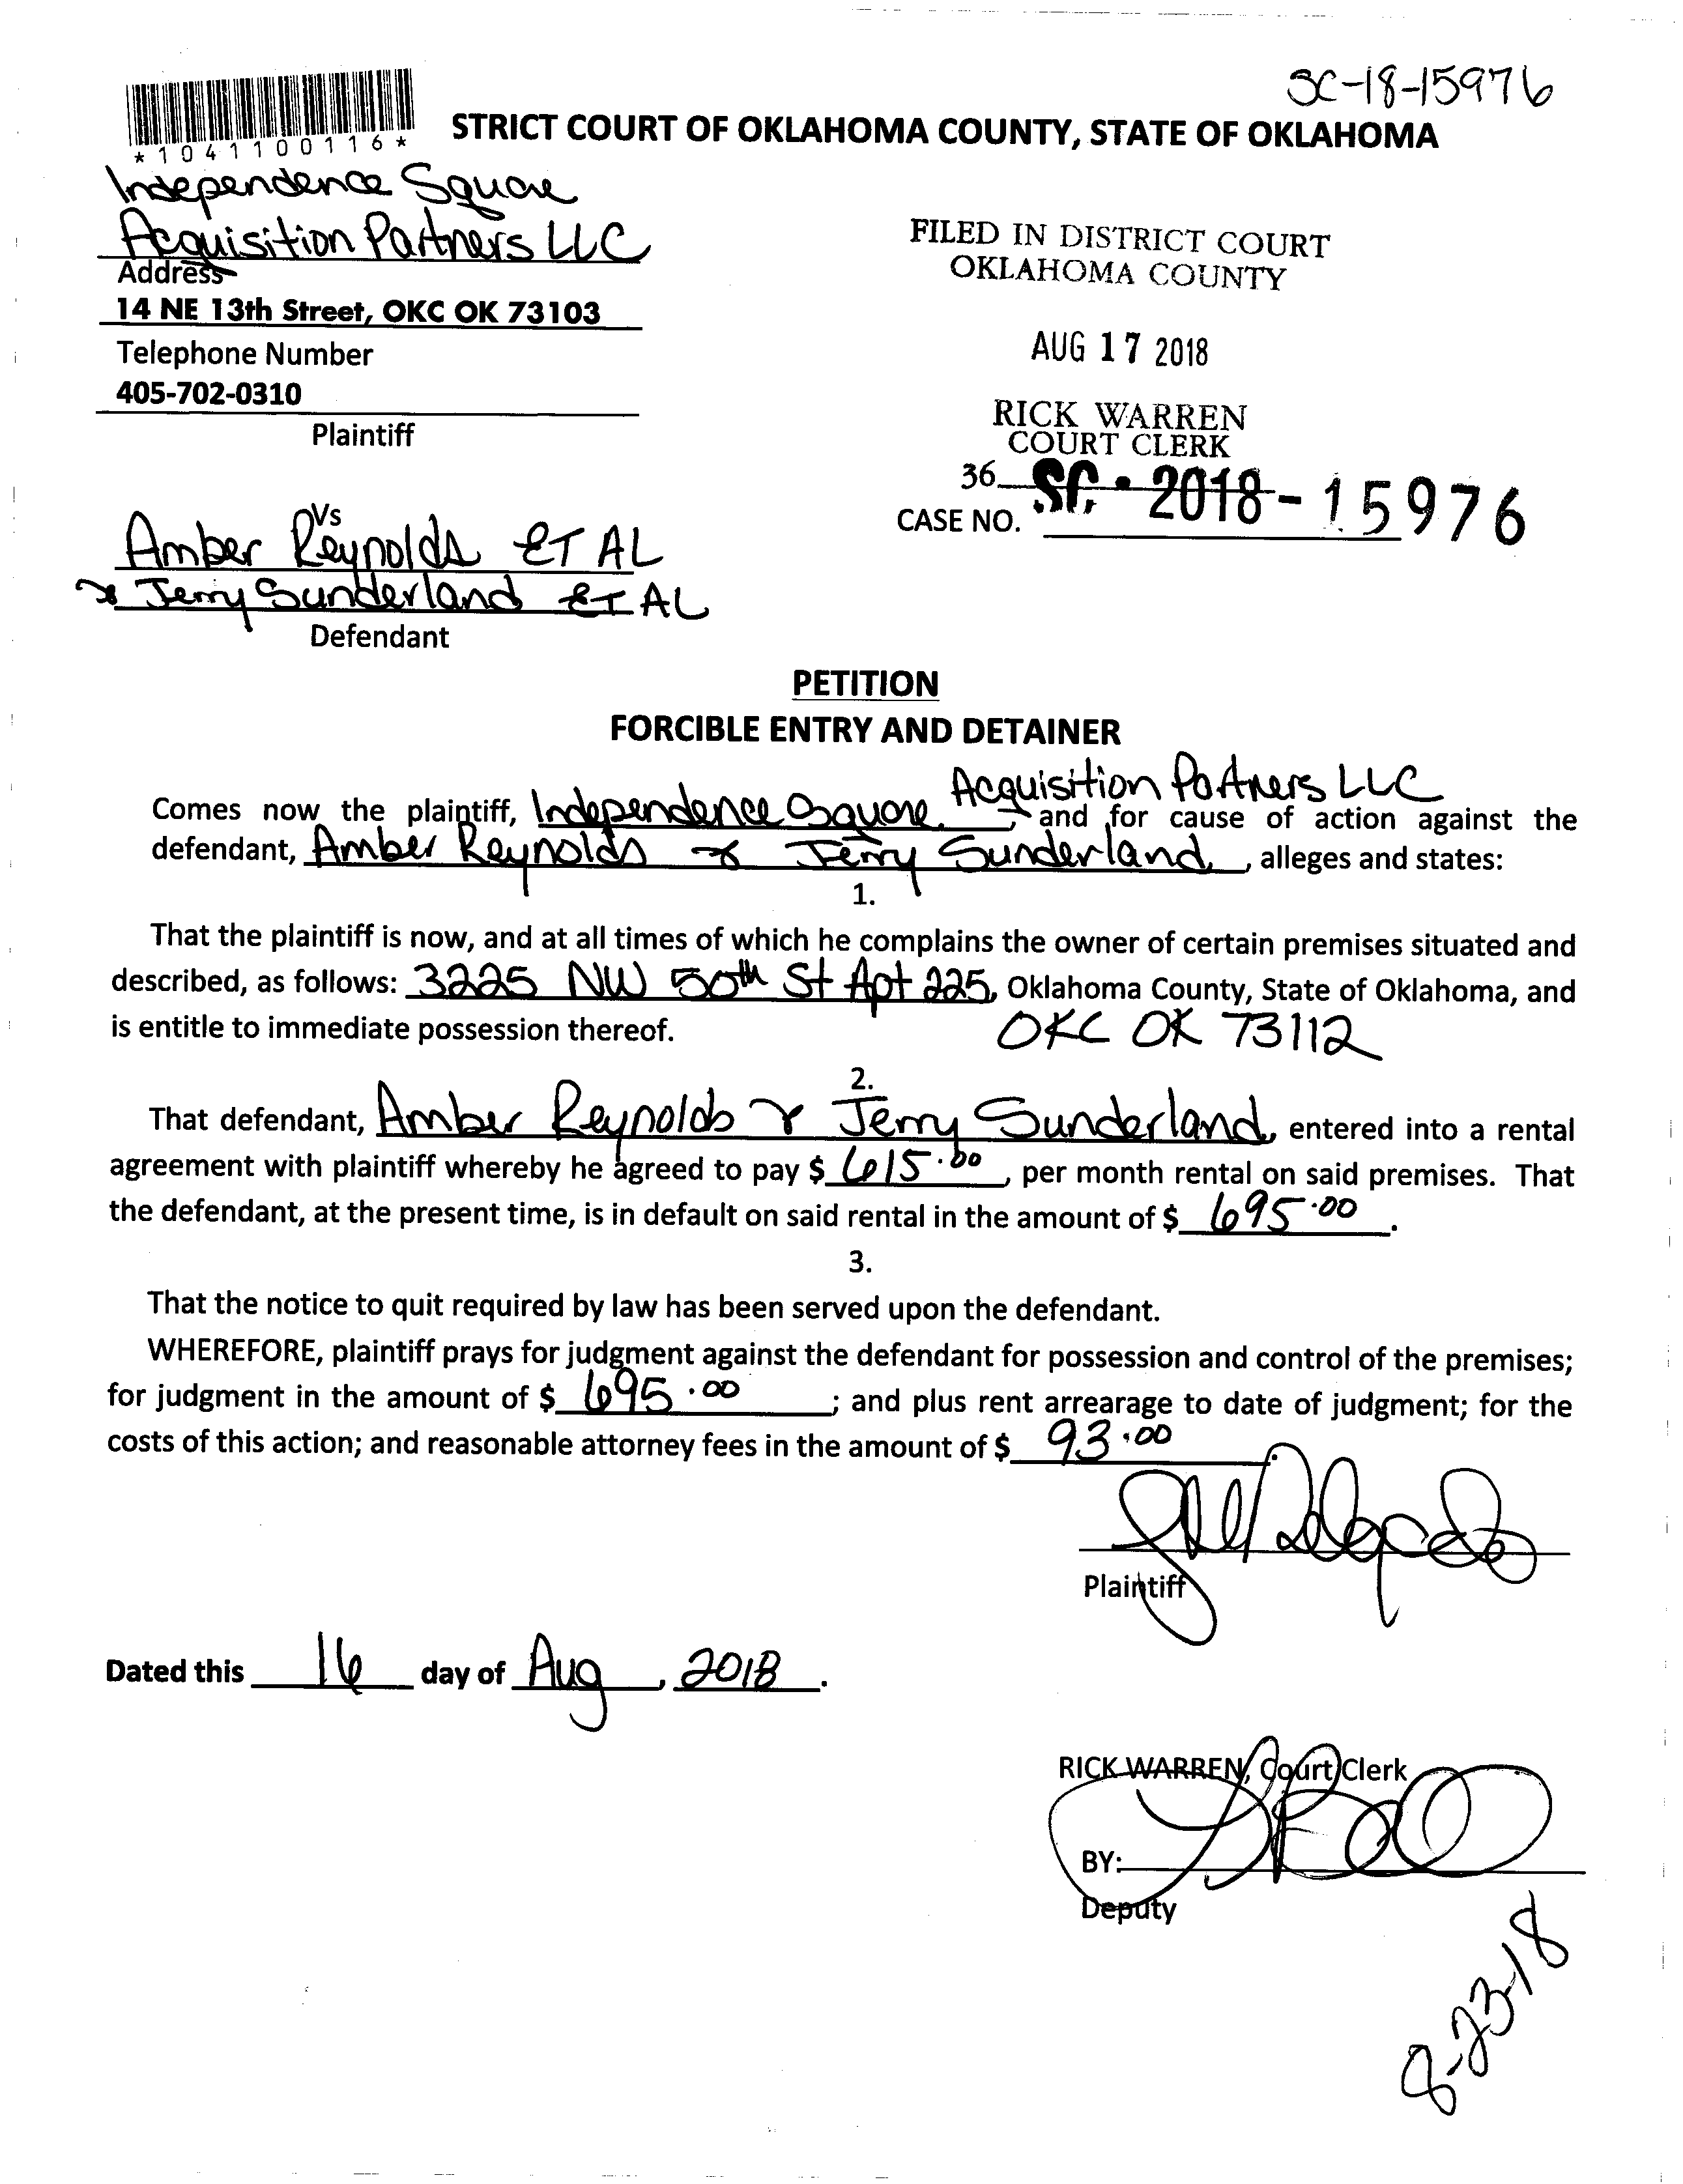 SC-18-15976
*1041100116*
STRICT COURT OF OKLAHOMA COUNTY, STATE OF OKLAHOMA
Independence Square
Acquisition Partners LLC
Address
14 NE 13th Street, OKC OK 73103
Telephone Number
405-702-0310
Plaintiff
FILED IN DISTRICT COURT
OKLAHOMA COUNTY
AUG 17 2018
RICK WARREN
COURT CLERK
36
CASE NO. SC-2018-15976
Vs
Amber Reynolds ET AL
& Jerry Sunderland ET AL
Defendant
PETITION
FORCIBLE ENTRY AND DETAINER
Acquisition Partners LLC
Comes now the plaintiff, Independence Square, and for cause of action against the
defendant, Amber Reynolds & Jerry Sunderland, alleges and states:
1.
That the plaintiff is now, and at all times of which he complains the owner of certain premises situated and
described, as follows: 3225 NW 50th St Apt 225, Oklahoma County, State of Oklahoma, and
is entitle to immediate possession thereof. OKC OK 73112
2.
That defendant, Amber Reynolds & Jerry Sunderland, entered into a rental
agreement with plaintiff whereby he agreed to pay $ 615.00, per month rental on said premises. That
the defendant, at the present time, is in default on said rental in the amount of $ 695.00.
3.
That the notice to quit required by law has been served upon the defendant.
WHEREFORE, plaintiff prays for judgment against the defendant for possession and control of the premises;
for judgment in the amount of $ 695.00; and plus rent arrearage to date of judgment; for the
costs of this action; and reasonable attorney fees in the amount of $ 93.00.
Plaintiff
Dated this 16 day of Aug, 2018.
RICK WARREN, Court Clerk
BY:
Deputy
8-23-18